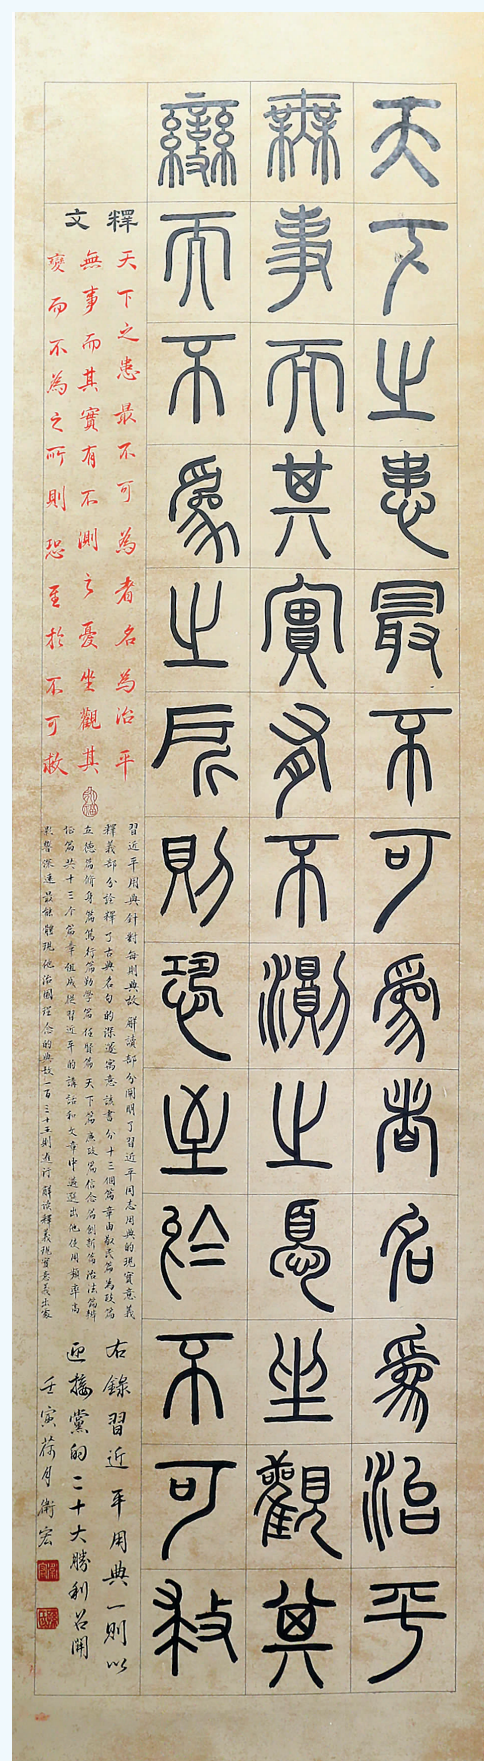 天下之患最不可為者名為治平
無事而其實有不測之憂坐觀其
變而不為之所則恐至於不可救
釋文
天下之患最不可为者名为治平
無事而其實有不測之憂坐觀其
變而不為之所則恐至於不可救
習近平用典針對每則典故解讀部分闡明了習近平同志用典的現實意義
釋義部分詮釋了古典名句的深邃寓意該書分十三個篇章由敬民篇為政篇
立德篇修身篇篤行篇勸學篇任賢篇天下篇廉政篇信念篇創新篇法治篇辯
证篇共十三个篇章組成從習近平的講話和文章中遴選出他使用頻率高
影響深遠最能體現他治國理念的典故一百三十五則進行解读释義現實意義出宏
右錄習近平用典一則以
迎接黨的二十大勝利召開
壬寅荷月衛宏